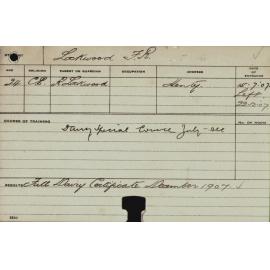 Lockwood F.R.
AGE RELIGION PARENT OR GUARDIAN OCCUPATION ADDRESS DATE OF ENTRANCE
24 C.E. R. Lockwood Henty. 15.7.07
Left
22.12.07
COURSE OF TRAINING NO. OF ROOM
Dairy Special Course July-Dec
RESULTS Full Dairy Certificate December 1907.